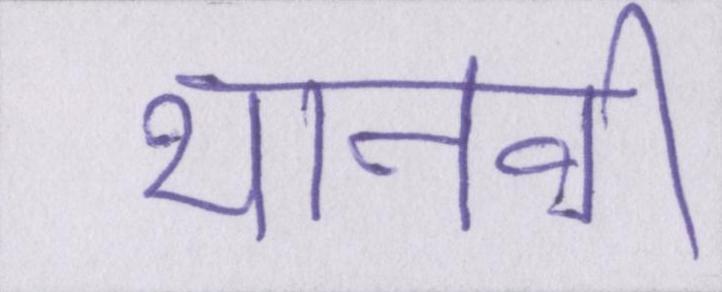 थानवी